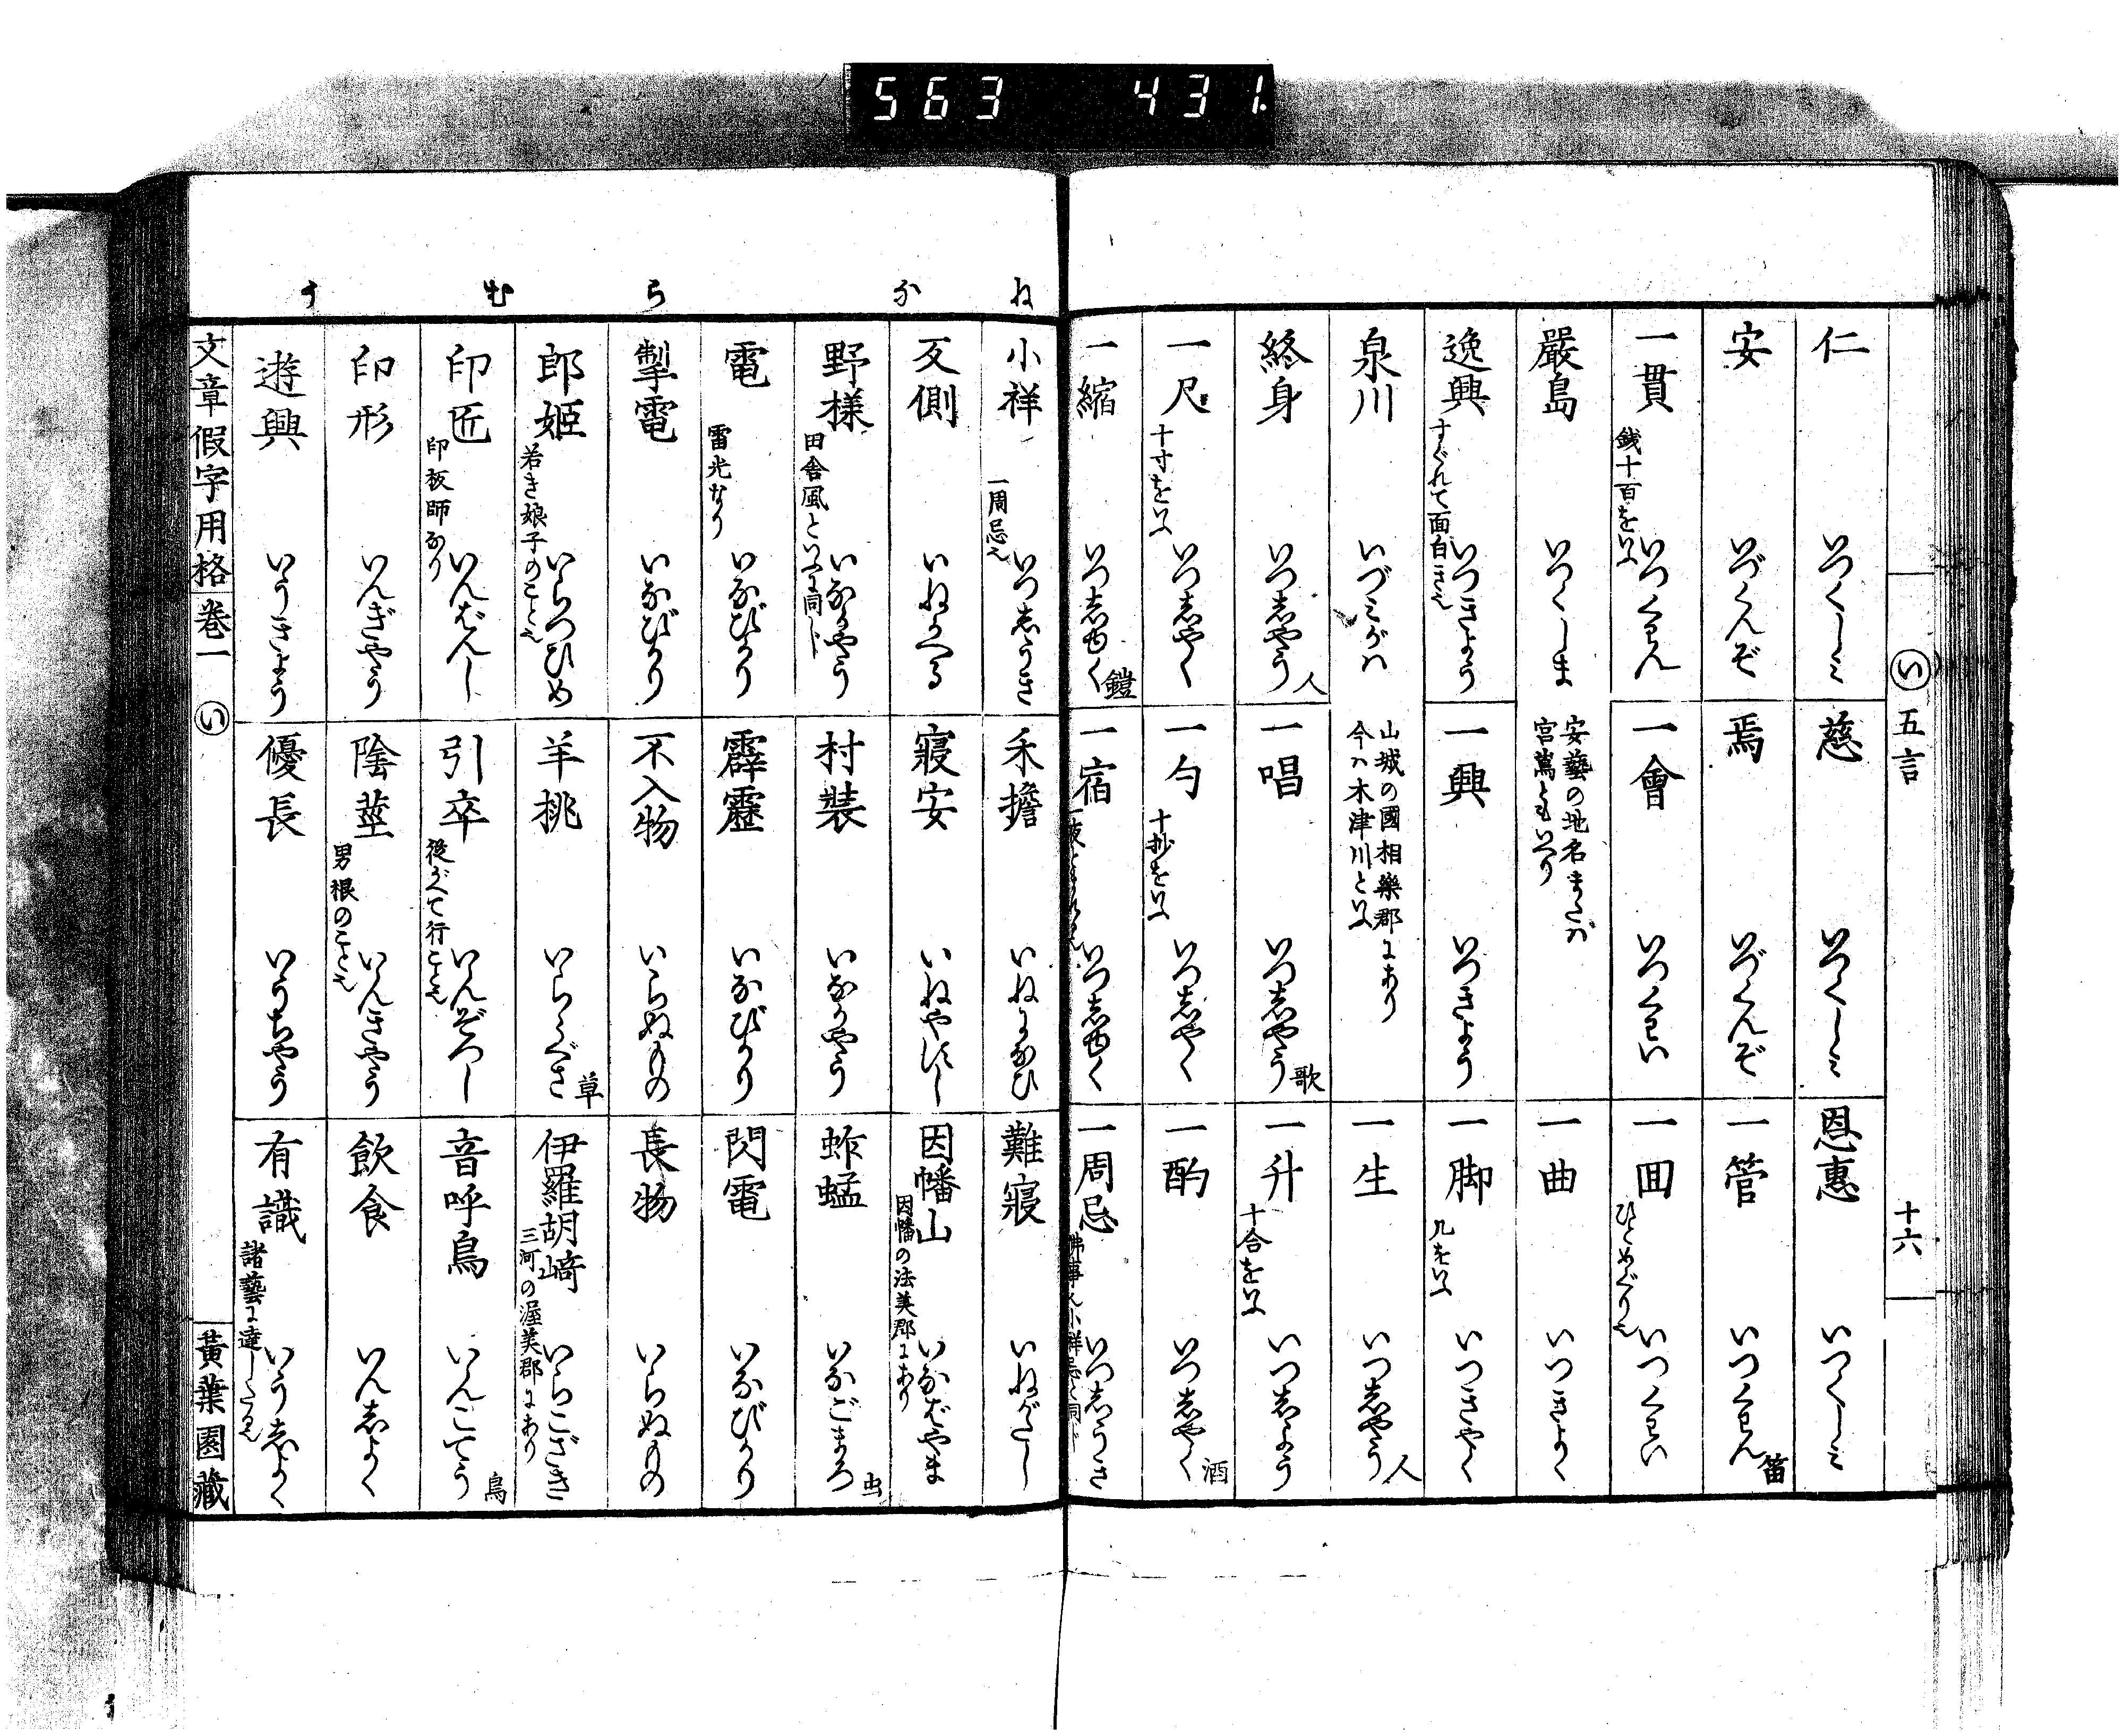 563 431.
い 五言 十六
仁 いつくしミ
慈 いつくしミ
恩惠 いつくしミ
安 いづくんぞ
焉 いづくんぞ
一管 いつくわん 笛
一貫 銭十百をいふ いつくわん
一會 いつくわい
一回 ひとめぐり也 いつくわい
嚴島 いつくしま 安藝の地名または宮嶌ともいへり
一曲 いつきよく
逸興 すぐれて面白き也 いつきよう
一興 いつきよう
一脚 几をいふ いつきやく
泉川 いづミがハ 山城の國相樂郡にあり今ハ木津川といふ
一生 いつしやう 人
終身 いつしやう 人
一唱 いつしやう 歌
一升 十合をいふ いつしよう
一尺 十寸をいふ いつしやく
一勺 十抄をいふ いつしやく
一酌 いつしやく 酒
一縮 いつしゆく 鎧
一宿 いつしゆく
一周忌 いつしうき
ね な ら む う
小祥 一周忌也 いつしうき
禾擔 いねになひ
難寢 いねがたし
反側 いねかへる
寢安 いねやすし
因幡山 因幡の法美郡にあり いなばやま
野樣 田舎風といふに同じ いなかやう
村裝 いなかやう
蚱蜢 いなごまろ 虫
電 雷光なり いなびかり
霹靂 いなびかり
閃電 いなびかり
掣電 いなびかり
不入物 いらぬもの
長物 いらぬもの
郎姫 若き娘子のこと也 いらつひめ
羊桃 いらくさ 草
伊羅胡﨑 三河の渥美郡にあり いらこざき
印匠 印板師なり いんばんし
引卒 從がへて行こと也 いんぞつし
音呼鳥 いんこてう 鳥
印形 いんぎやう
陰莖 男根のこと也 いんきやう
飲食 いんしよく
遊興 いうきよう
優長 いうちやう
有識 諸藝に達したる也 いうしよく
文章假字用格 巻一 い 黄葉園藏